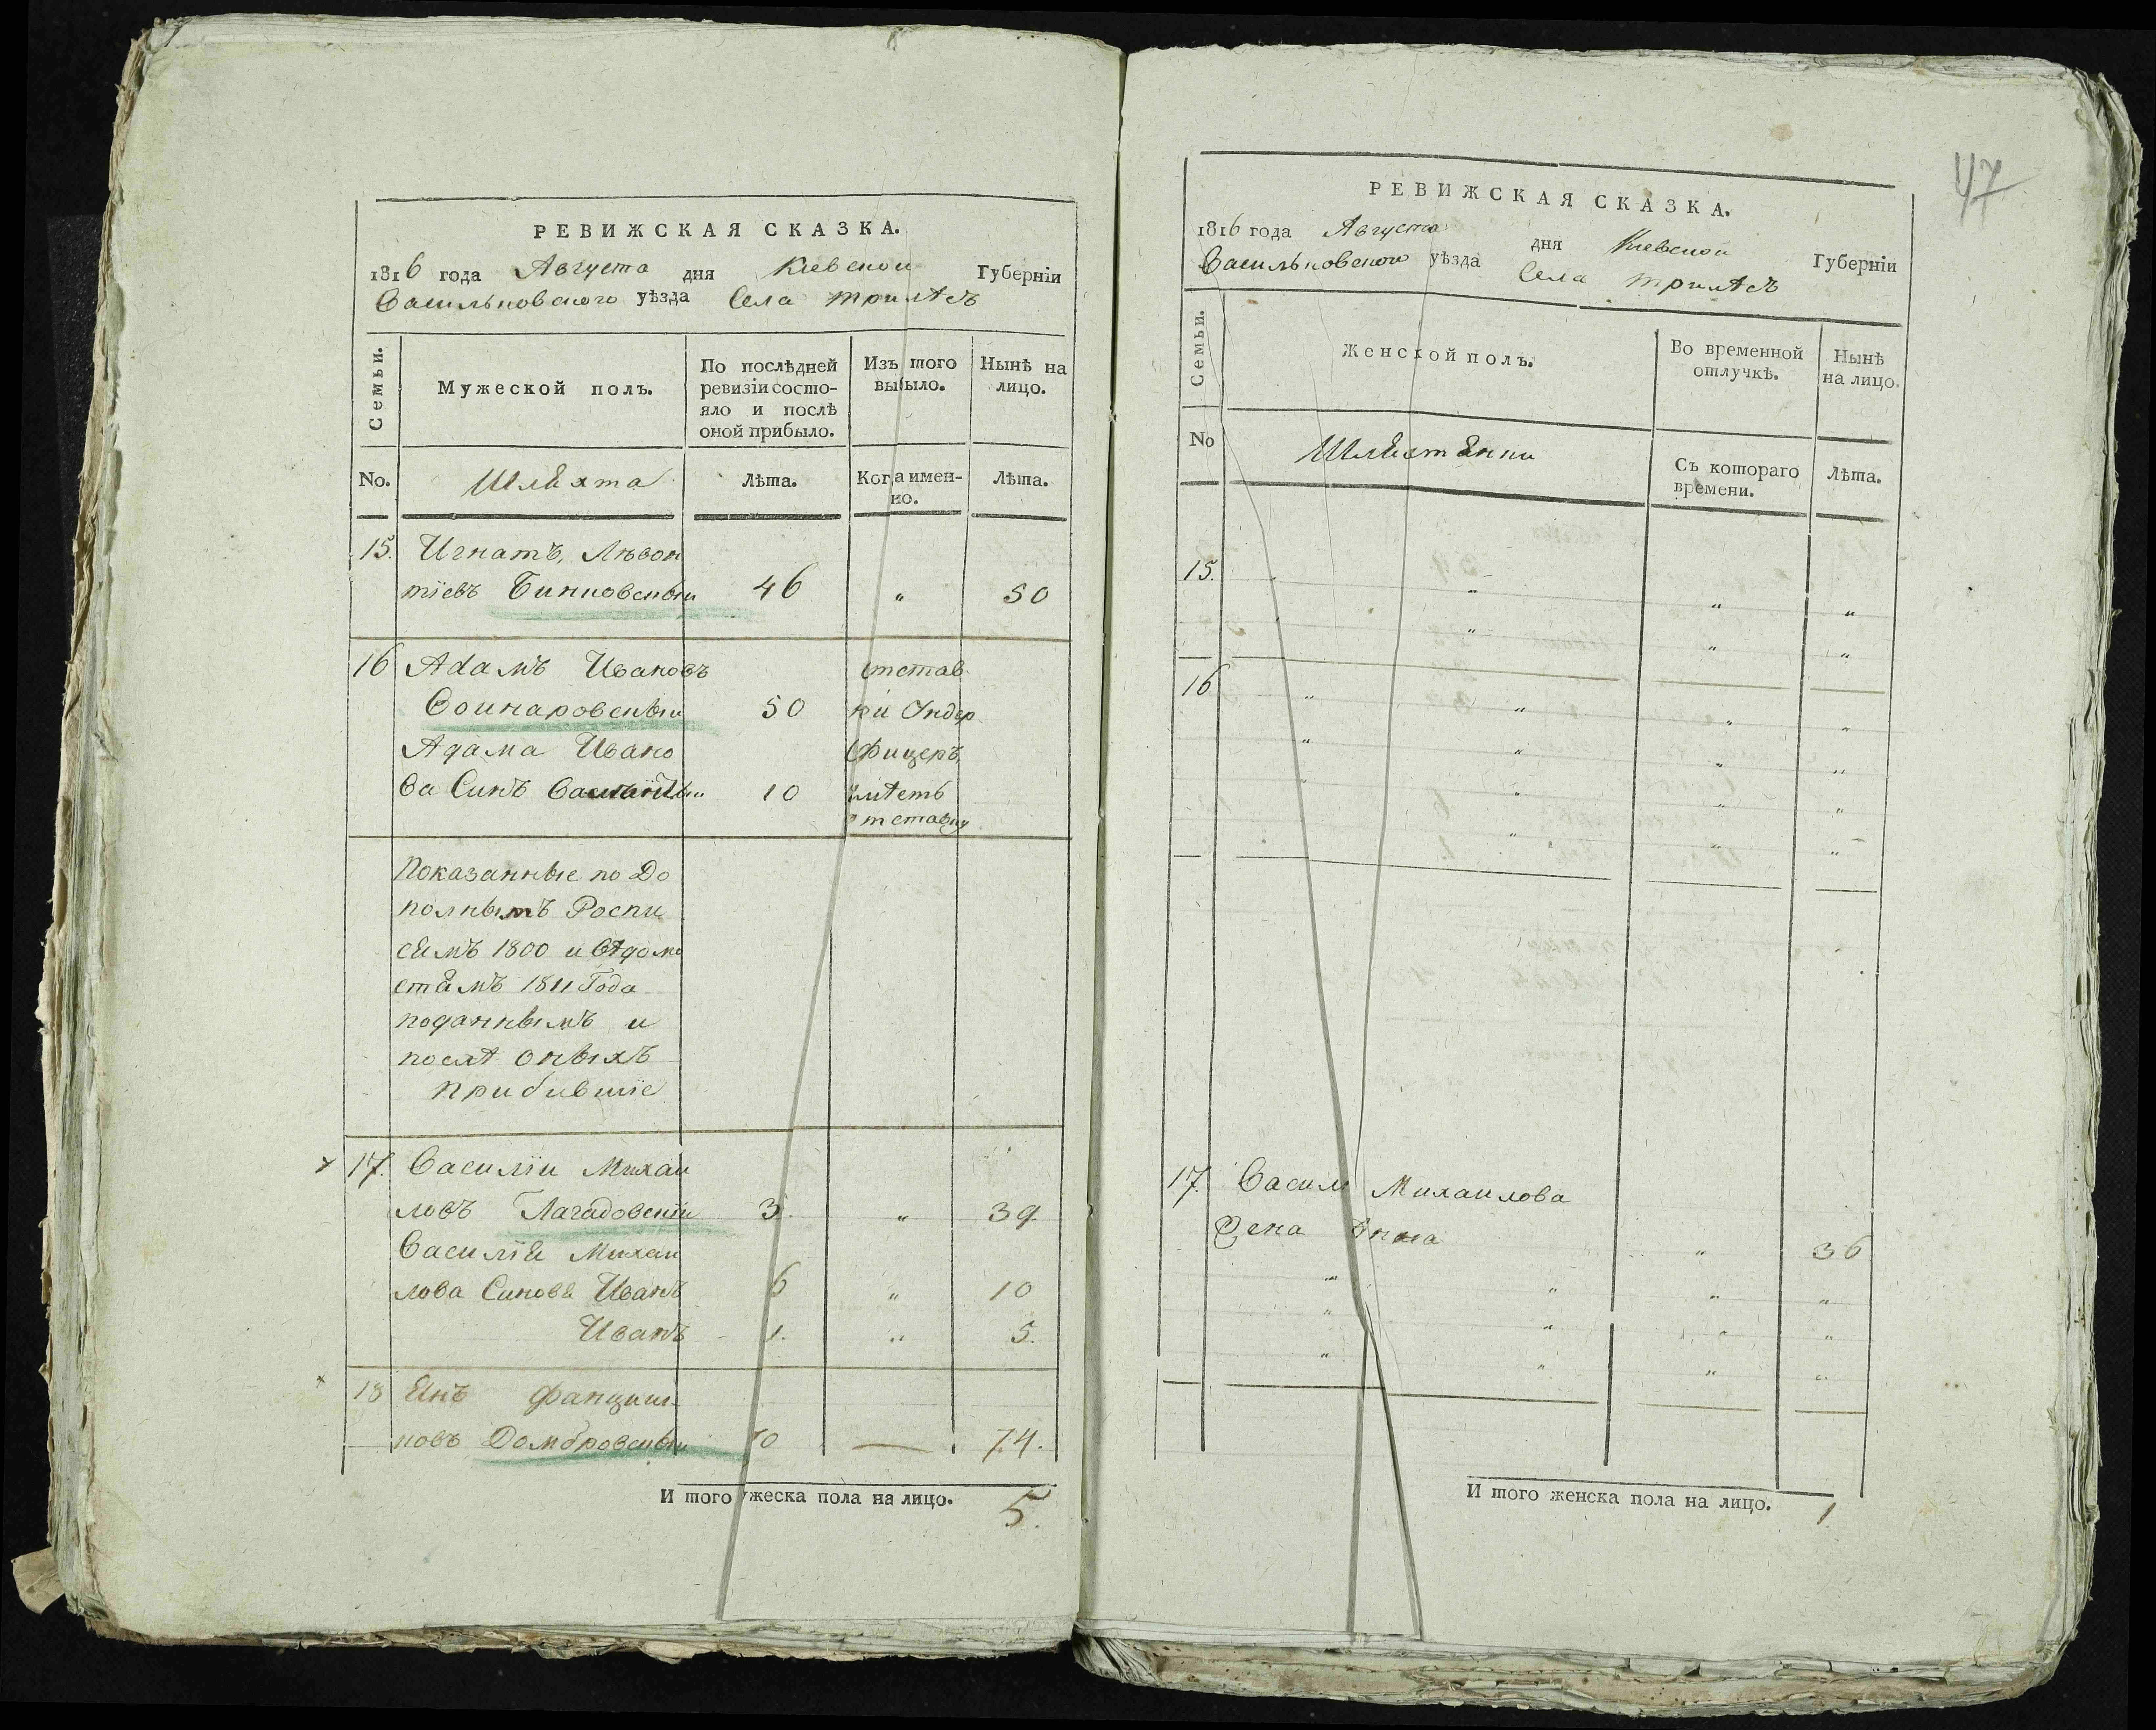 РЕВИЖСКАЯ СКАЗКА.
1816 года Августа дня Киевской Губерніи
Васильковского уѣзда Села Трилѣсъ
Семьи.
Мужеской полъ.
По послѣдней ревизіи состояло и послѣ оной прибыло.
Изъ того выбыло.
Нынѣ на лицо.
No. Шляхта Лѣта. Когда именно. Лѣта.
15. Игнатъ Лѣвон
тіевъ 46 " 50
16 Адамъ Ивановъ отстав
50
Адама Ивано Фицеръ
ва Синъ 10
Показанные по До
полнымъ Роспи
сямъ 1800 и Вѣдомо
стямъ 1811 Года
поданнымъ и
послѣ оныхъ
прибившіе
17. Василіи Михаи
ловъ 3 " 39
Василія Михаи
лова Синовя Иванъ 6 " 10
Иванъ 1. " 5.
18 Янъ
новъ Домбровскыи 70 — 74.
И того мужеска пола на лицо. 5.
47
РЕВИЖСКАЯ СКАЗКА.
1816 года Августа дня Киевской Губерніи
Васильковского уѣзда Села Трилѣсъ
Семьи.
Женской полъ.
Во временной отлучкѣ.
Нынѣ на лицо.
No Шляхтянки Съ котораго времени. Лѣта.
15. " " "
" " "
16 " " " "
" " " "
" " " "
" " "
17. Васил Михаилова
Жена " 36
" " " "
" " " "
" " " "
И того женска пола на лицо. 1.